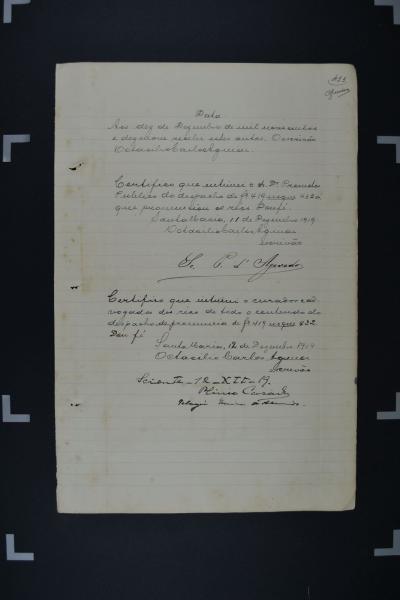 Data
Aos dez de Dezembro de mil novecentos
e dezenove recebi estes autos. O escrivão
Octacilio Carlos Aguiar
Certifico que intimei o Sr. Dr. Promotor
Publico do despacho de fs 419 usque 422
que pronunciou os réos. Dou fé.
Santa Maria, 11 de Dezembro 1919
Octacilio Carlos Aguiar
Escrivão
P. d' Azevedo
Certifico que intimei o curador e ad
vogado dos réos de todo o contendo do
despacho de pronuncia de fs 419 usque 422
Dou fé
Santa Maria, 12 de Dezembro 1919
Octacilio Carlos Aguiar
Escrivão
Sciente – 12 – XII – 19.
Plinio